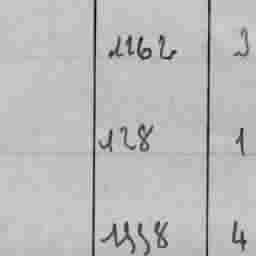 1162 3
128 1
1558 4